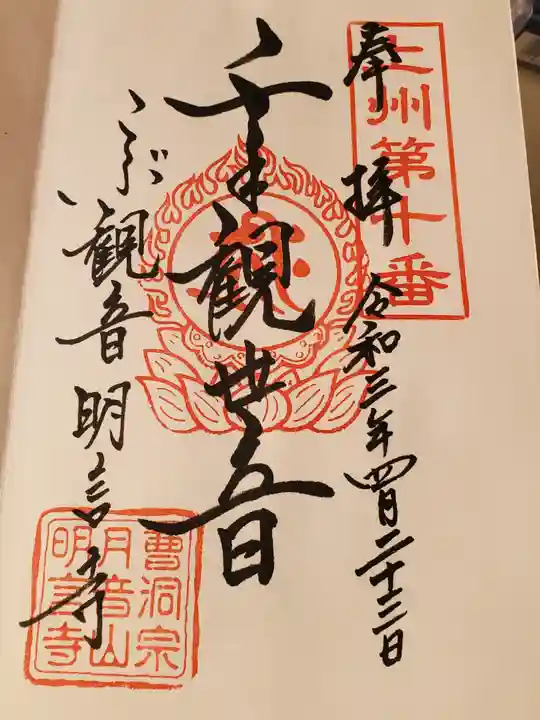 上州第十番
奉拝 令和三年四月二十三日
千手観世音
こぶ観音明言寺
曹洞宗
月音山
明言寺